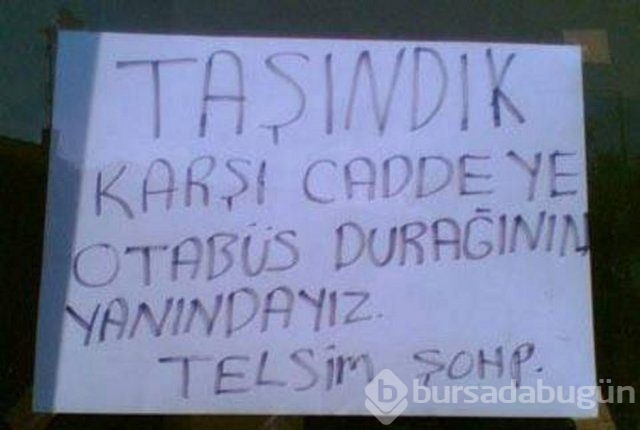 TAŞINDIK
KARŞI CADDEYE
OTABÜS DURAĞININ
YANINDAYIZ.
TELSİM ŞOHP.
bursadabugün